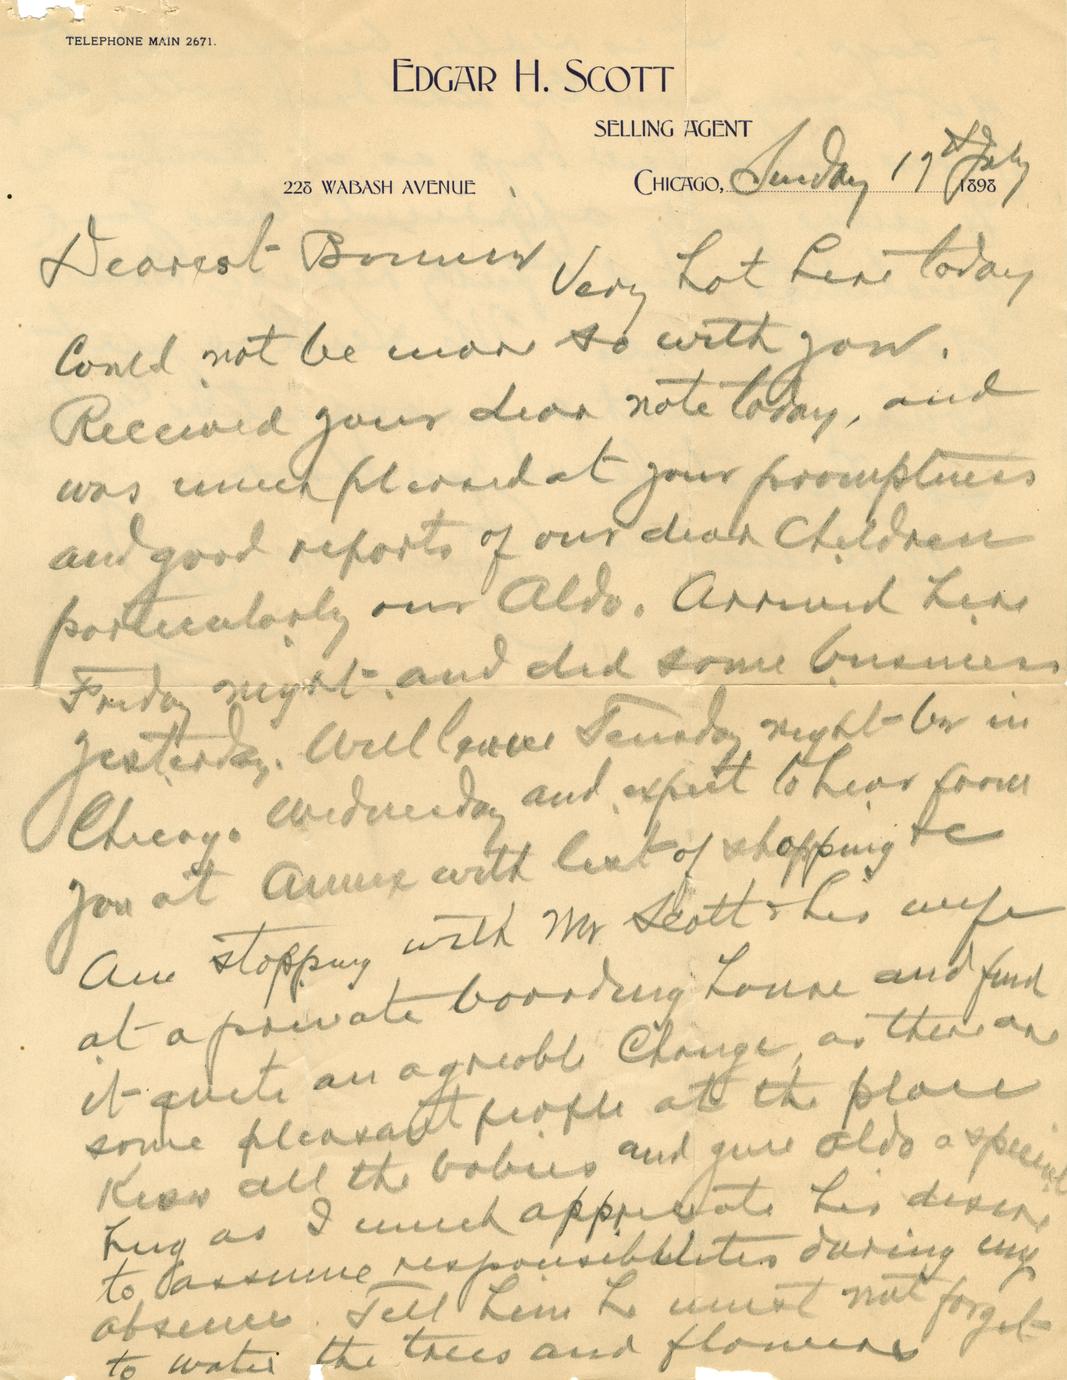 TELEPHONE MAIN 2671.
EDGAR H. SCOTT
SELLING AGENT
228 WABASH AVENUE
CHICAGO, Sunday 17th July 1898
Dearest
Very hot here today
Could not be more so with you.
Received your dear note today, and
was much pleased at your promptness
and good reports of our dear Children
particularly our Aldo. Arrived here
Friday night and did some business
yesterday. Will leave Tuesday night be in
Chicago Wednesday and expect to hear from
you at Annex with list of shopping &c
Am stopping with Mr Scott & his wife
at a private boarding house and find
it quite an agreable Change, as there are
some pleasant people at the place
Kiss all the babies and give Aldo a special
hug as I much appreciate his desire
to assume responsibilites during my
absence. Tell him he must not forget
to water the trees and flowers